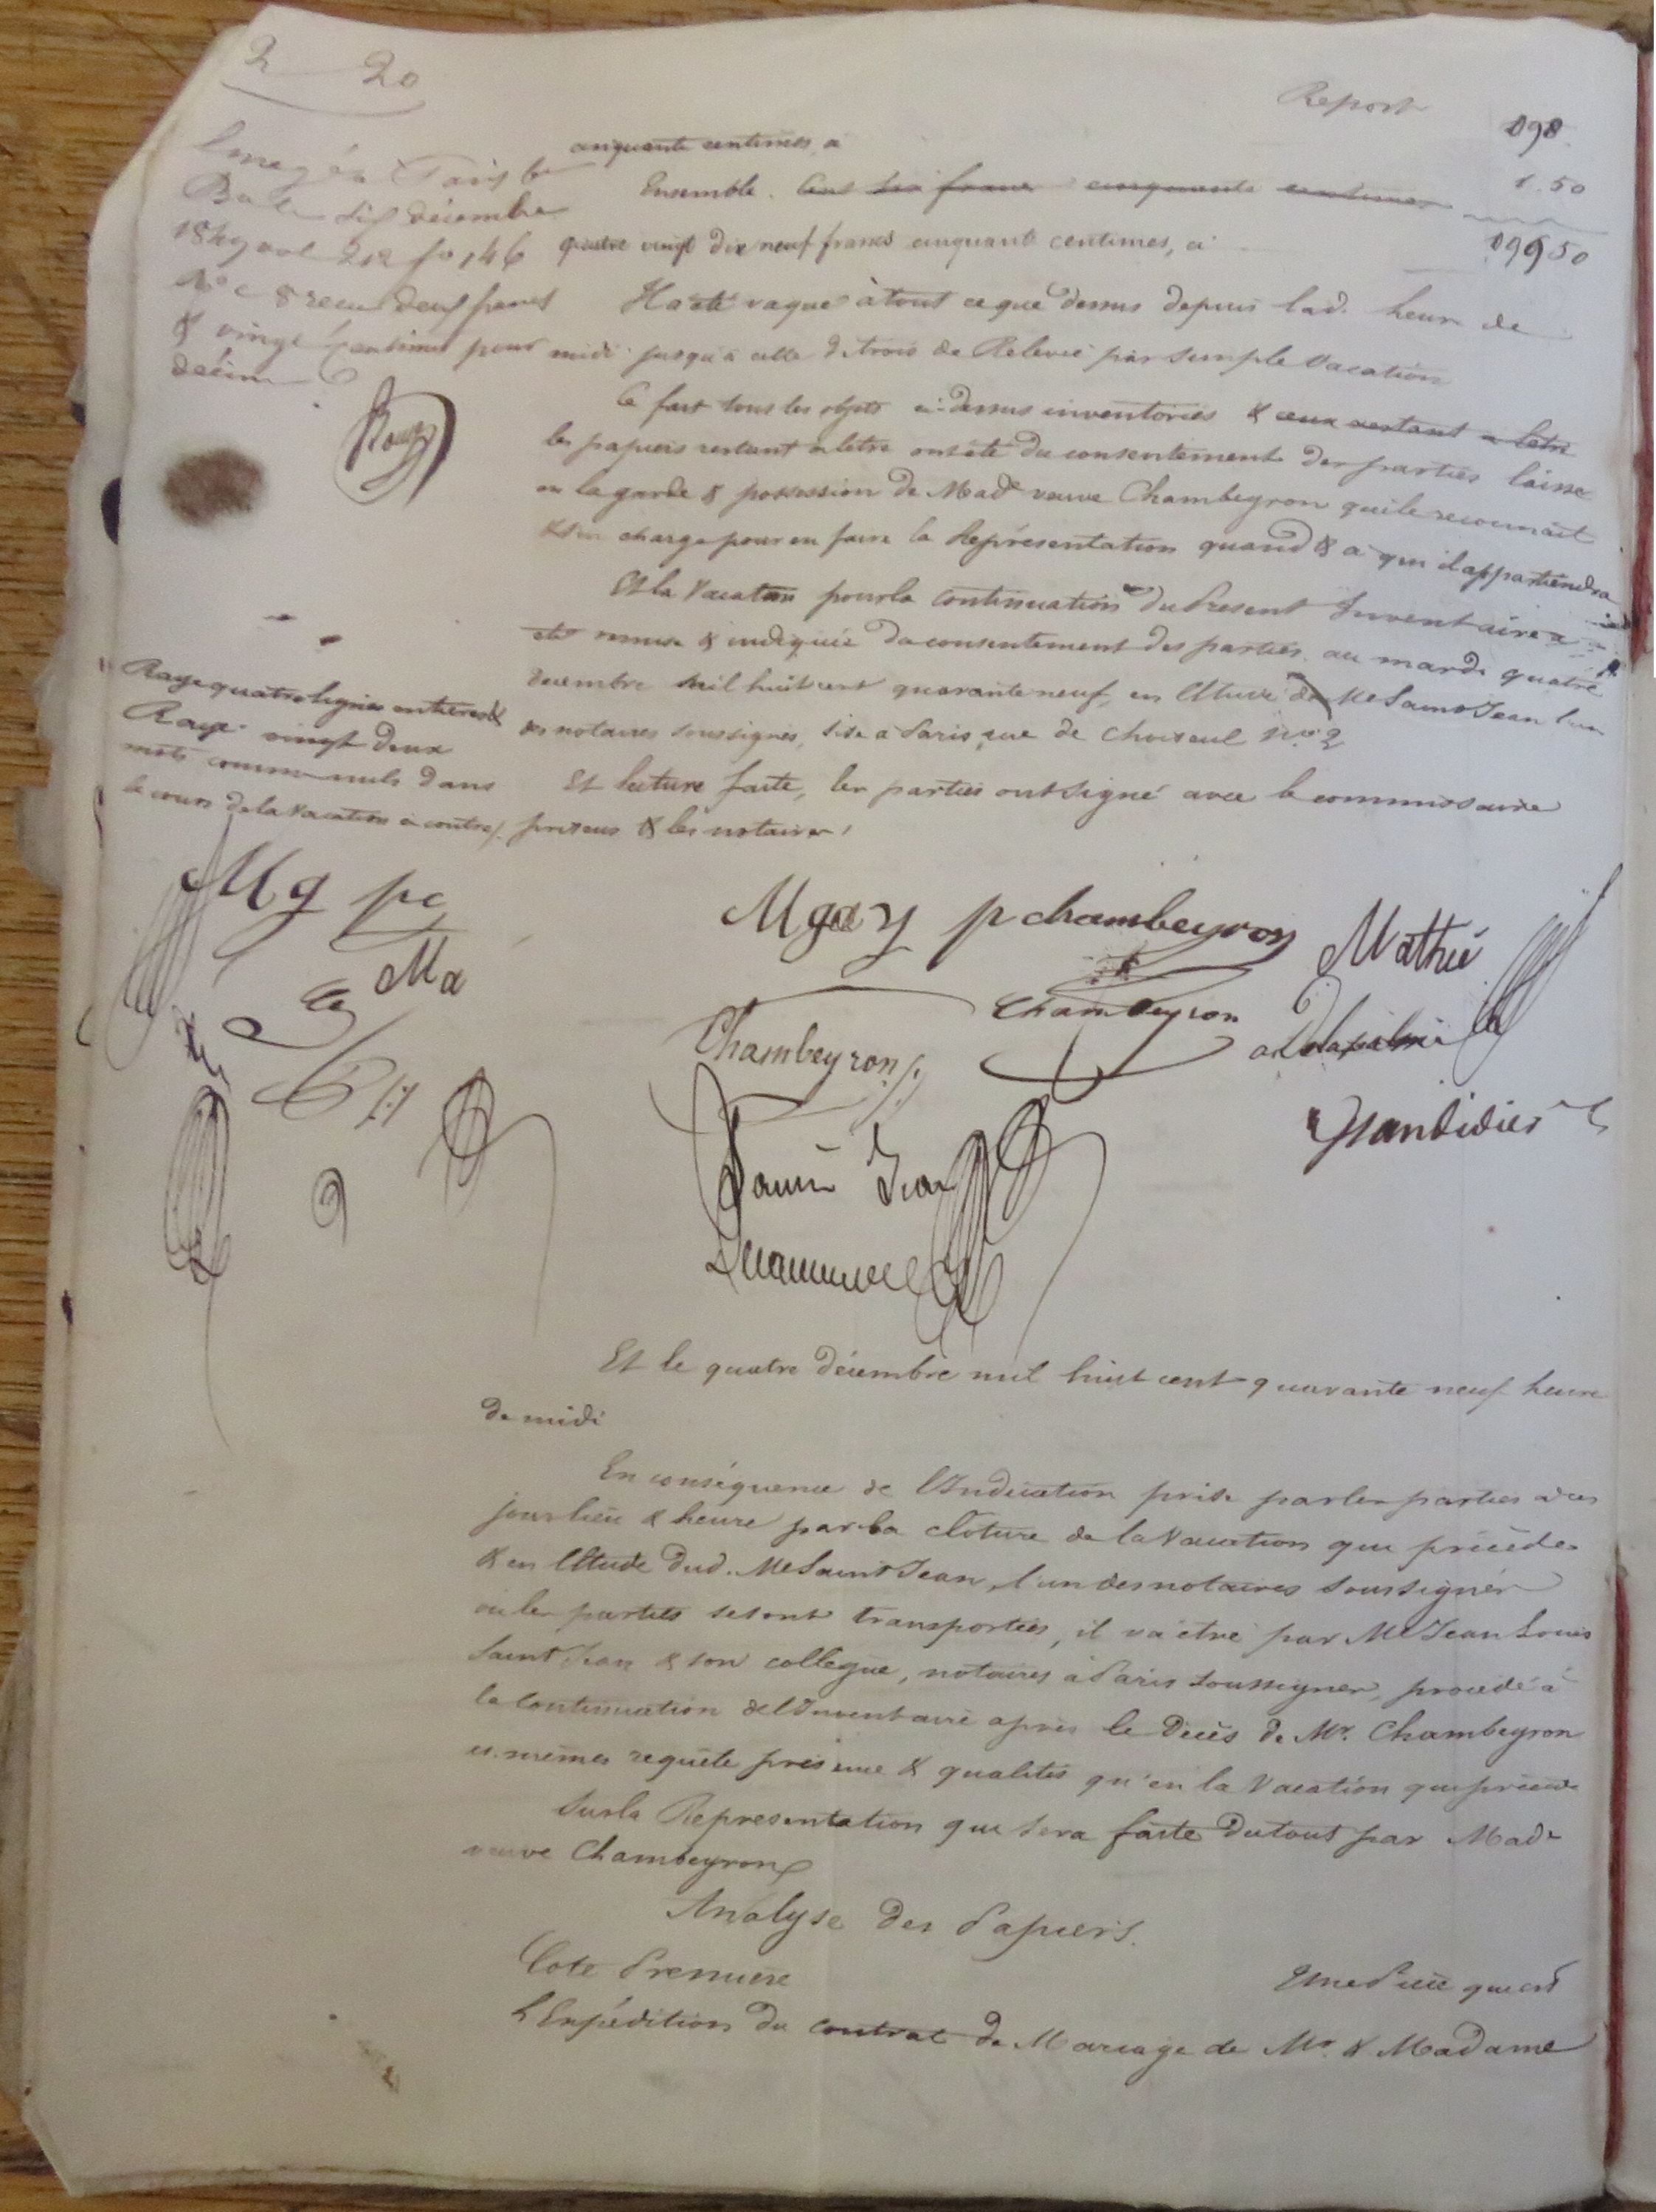 2 20
Report 098
cinquante centimes, a
1.50
Ensemble. Cent six francs cinquante centimes
quatre vingt dix neuf francs cinquante centimes, ci 099 50
Enregé à Paris
Bau décembre
1849 vol 212 fo 146
Ne c 8 recu deux francs
& vingt centimes pour
décime
Il a été vaqué à tout ce que dessus depuis lad. heure de
midi jusqu'à celle de trois de Relevée par simple vacation
Ce fait tous les objets ci-dessus inventoriés & ceux restant à l'etre
les papiers restant à letre ont été du consentement des parties laissé
en la garde & possession de Made veuve Chambeyron qui le reconnait
& s'en charge pour en faire la Représentation quand & à qui il appartiendra
Et la Vacation pour la continuation du Present Inventaire a
été remise & indiquée du consentement des parties au mardi quatre
decembre mil huit cent quarante neuf, en l'Etude de Me Saint Jean l'un
des notaires soussignés, sise à Paris, rue de Choiseul No 2
Et lecture faite, les parties ont signé avec le commissaire
priseur & les notaires
Rayé quatre lignes entieres &
Rayé vingt deux
mots comme nuls dans
le cours de la Vacation ci contre
M g pc
Ma
M gay p chambeyron
Mathié
Chambeyron
Chambeyron
Delapalme
Grandidier
Saint Jean
Et le quatre décembre mil huit cent quarante neuf heure
de midi
En conséquence de l'Indication prise par les parties à ces
jour lieu & heure par la clôture de la Vacation qui précède
& en l'Etude dud. Me Saint Jean, l'un des notaires soussignés
où les parties se sont transportées, il va être par Me Jean Louis
Saint Jean & son collegue, notaires à Paris soussignés, procédé à
la Continuation de l'Inventaire après le Décès de Mr. Chambeyron
es mêmes requête présence & qualités qu'en la Vacation qui précède
Sur la Representation qui sera faite du tout par Made
veuve Chambeyron
Analyse des Papiers.
Cote Premiere
Une Piece qui est
L'Expédition du contrat de Mariage de Mr. & Madame